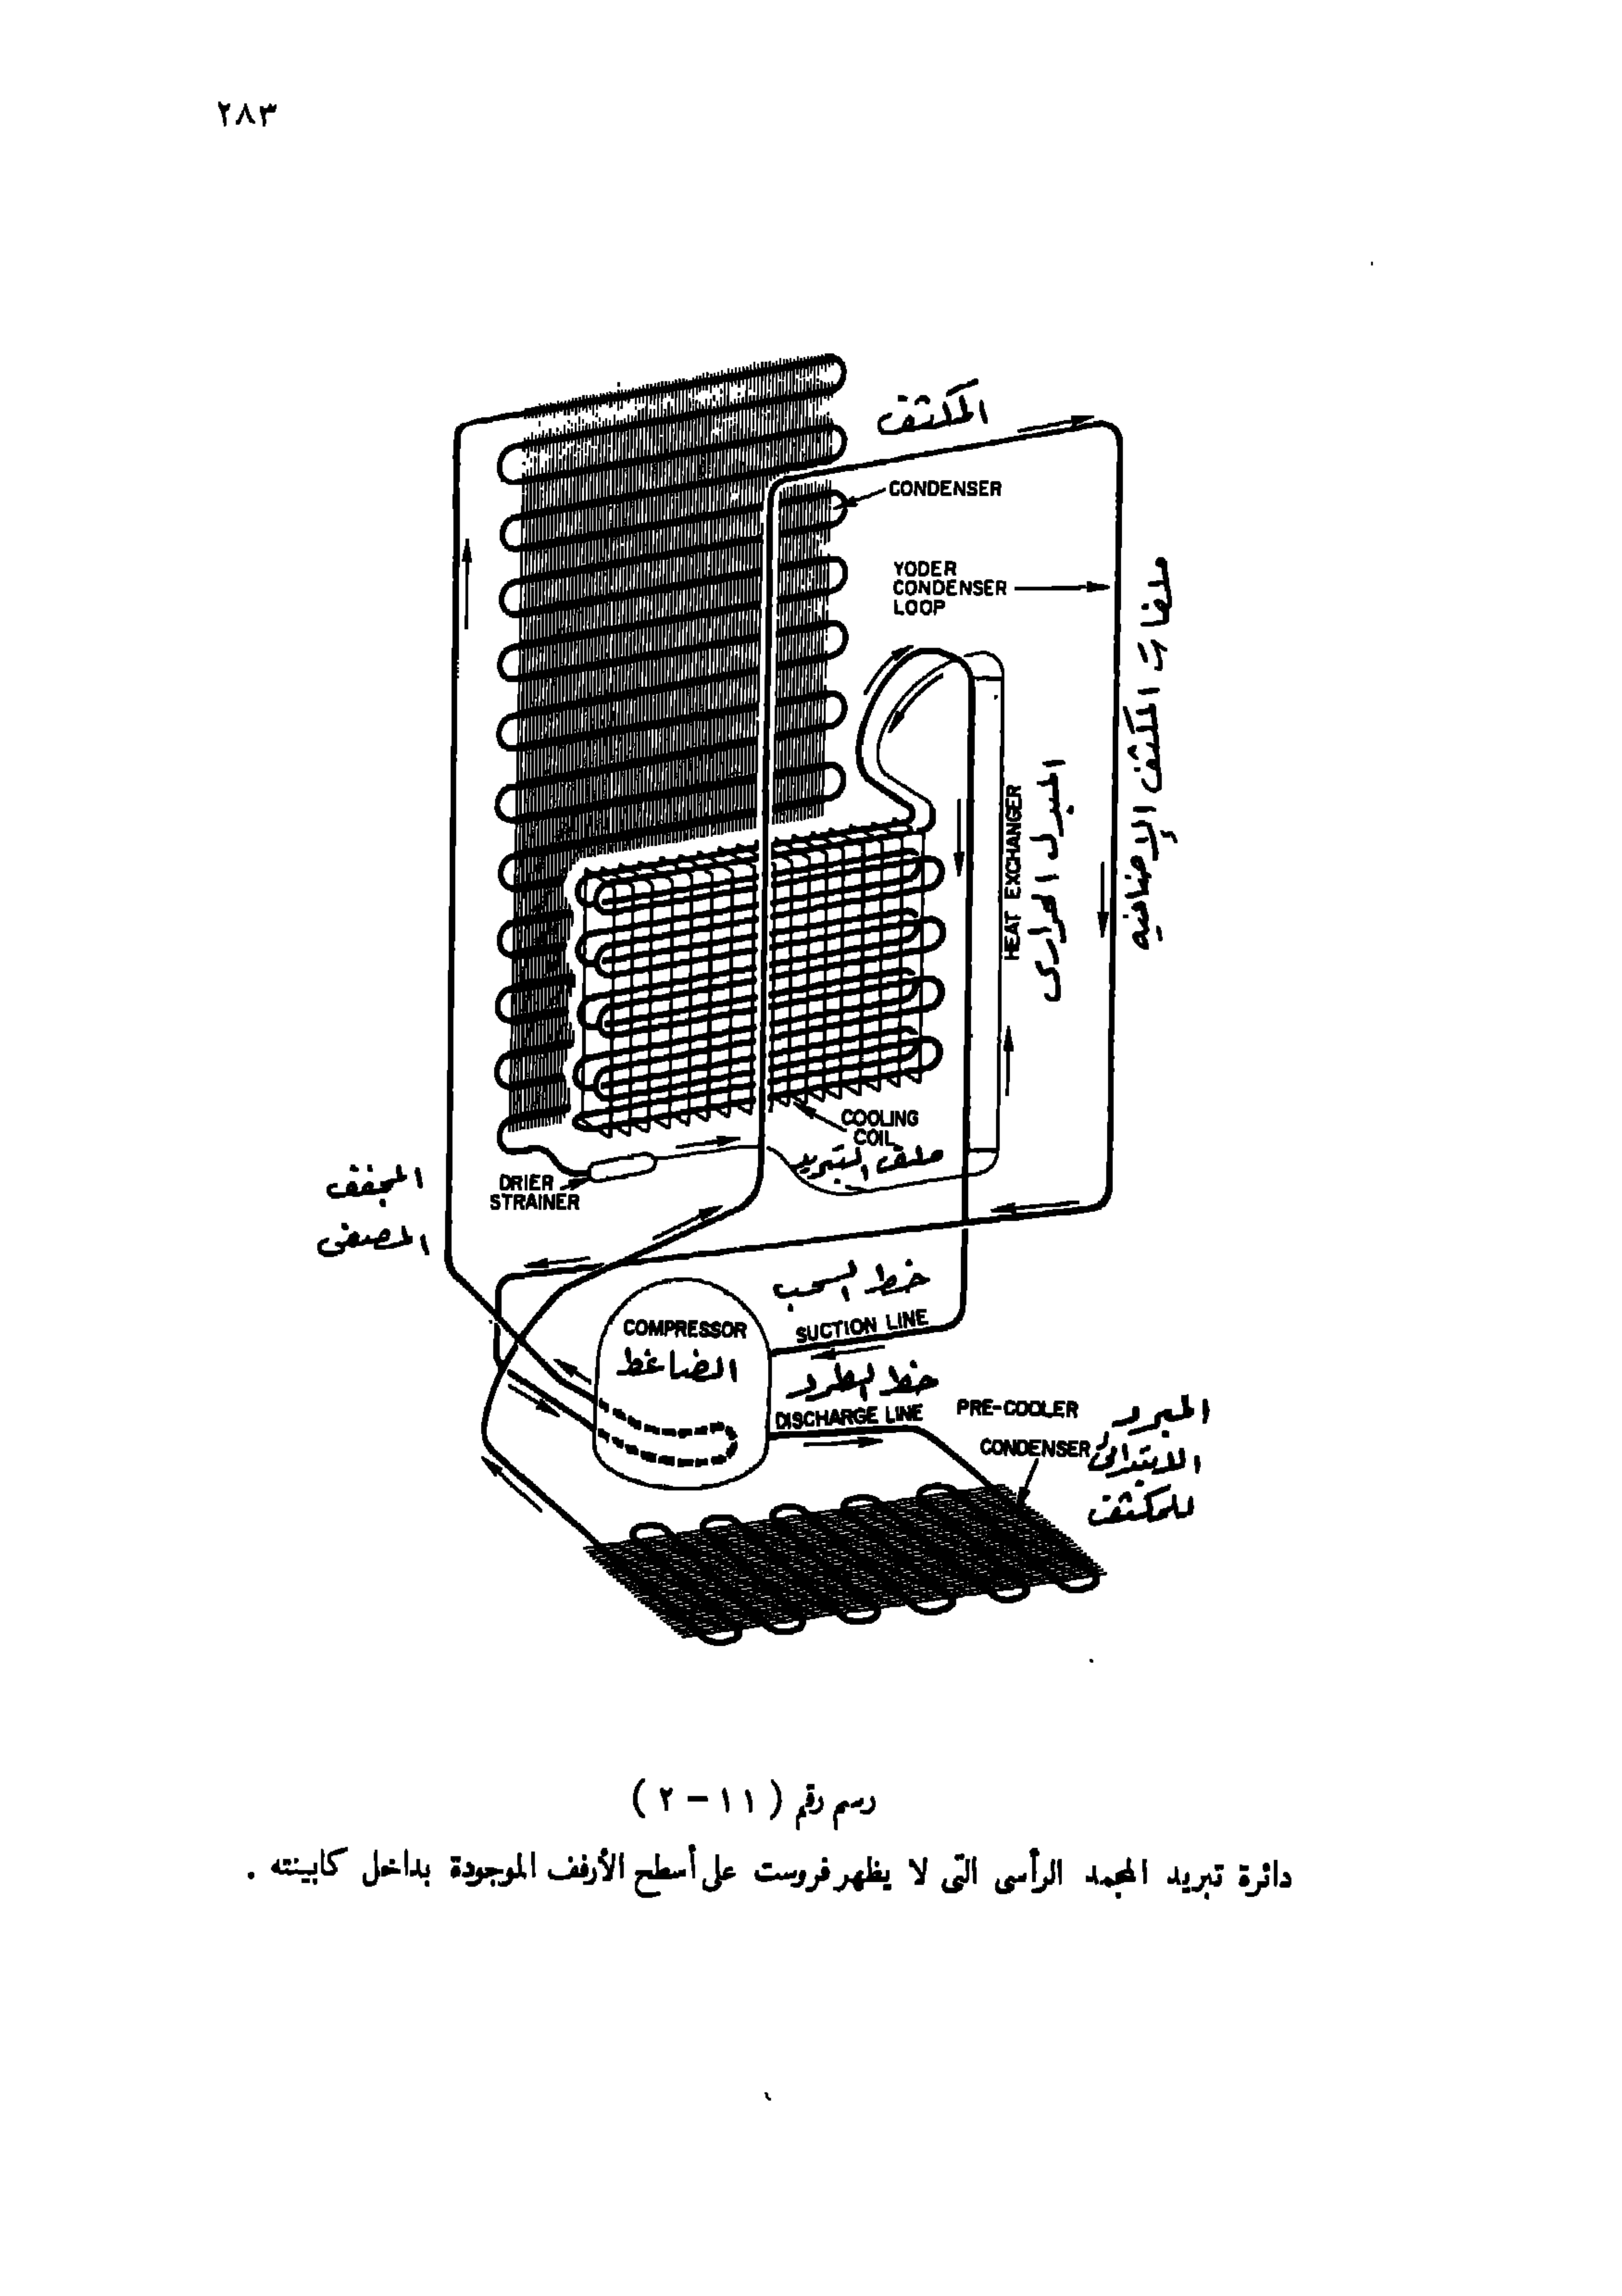 ٢٨٣
المكثف
CONDENSER
YODER
CONDENSER
LOOP
ملفات المكثف الإضافيه
HEAT EXCHANGER
المبدل الحرارى
COOLING
COIL
ملف التبريد
DRIER
STRAINER
المجفف
المصفى
خط السحب
SUCTION LINE
COMPRESSOR
الضاغط
خط الطرد
DISCHARGE LINE
PRE-COOLER
CONDENSER
المبرد
الابتدائى
للمكثف
رسم رقم ( ١١ – ٢ )
دائرة تبريد المجمد الرأسى التى لا يظهر فروست على أسطح الأرفف الموجودة بداخل كابينته .